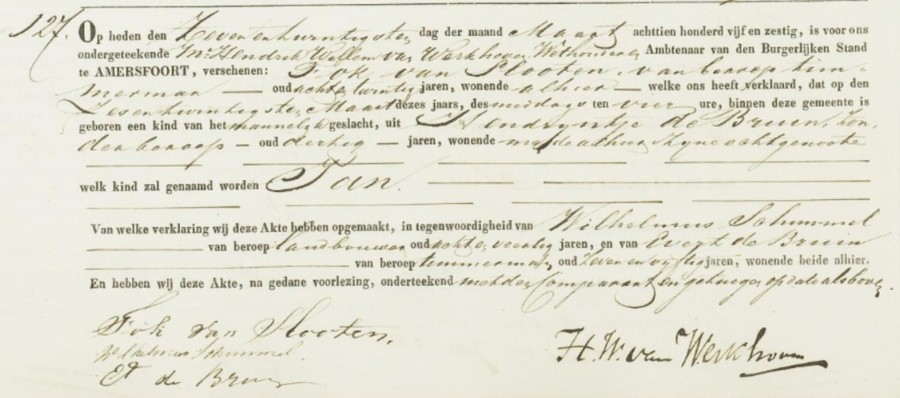 127. Op heden den Zevenentwintigsten dag der maand Maart achttien honderd vijf en zestig, is voor ons
ondergeteekende Mr Hendrik Willem van Werkhoven, Wethouder, Ambtenaar van den Burgerlijken Stand
te AMERSFOORT, verschenen: Fok van Slooten, van beroep tim-
merman — oud achtentwintig jaren, wonende alhier — welke ons heeft verklaard, dat op den
Zesentwintigsten Maart dezes jaars, des middags ten vier ure, binnen deze gemeente is
geboren een kind van het mannelijk geslacht, uit Hendrijntje de Bruin, zon-
der beroep — oud dertig — jaren, wonende mede alhier, zijne echtgenoote
welk kind zal genaamd worden Jan.
Van welke verklaring wij deze Akte hebben opgemaakt, in tegenwoordigheid van Wilhelmus Schimmel
van beroep landbouwer oud achtenveertig jaren, en van Evert de Bruin
van beroep temmerman, oud zevenenvijftig jaren, wonende beide alhier.
En hebben wij deze Akte, na gedane voorlezing, onderteekend met den Comparant en getuigen op dato als boven.
Fok van Slooten.
Wilhelmus Schimmel.
H.W. van Werkhoven
de Bruin